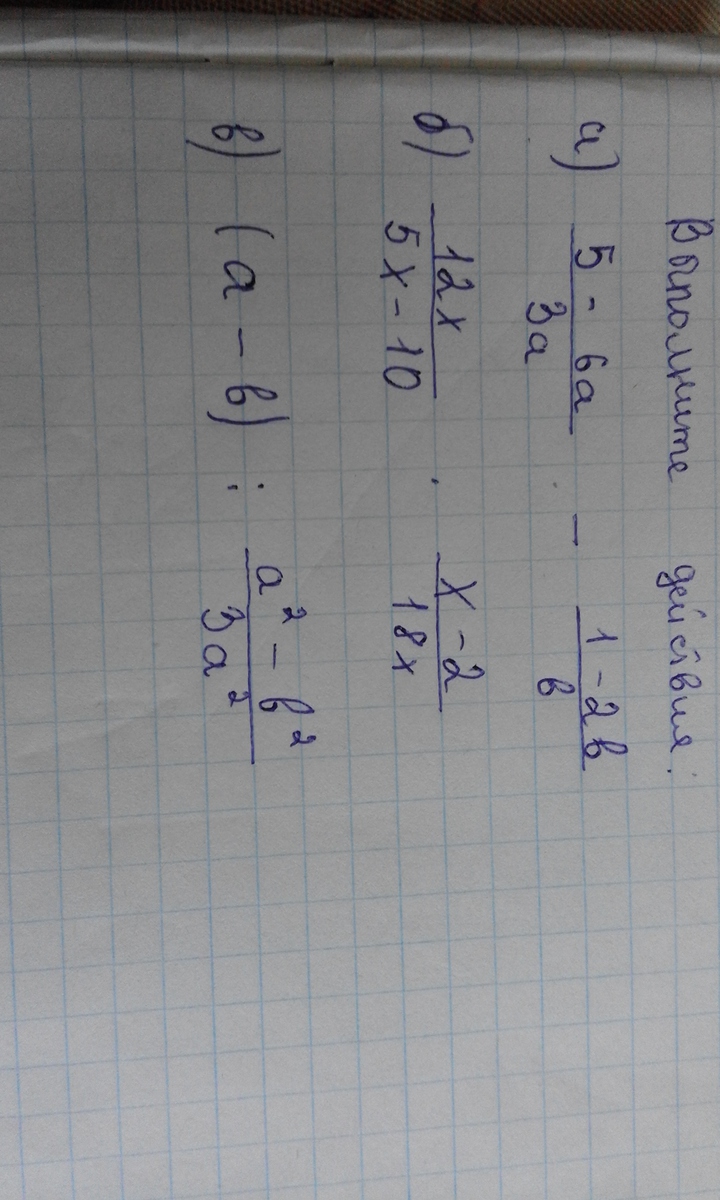 Выполните действия:
а) \frac{5 - 6a}{3a} - \frac{1 - 2b}{b}
б) \frac{12x}{5x - 10} \cdot \frac{x - 2}{18x}
в) (a - b) : \frac{a^2 - b^2}{3a^2}